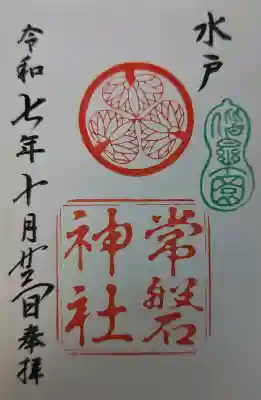 水戸
偕樂園
常磐
神社
令和七年十月廿日奉拝